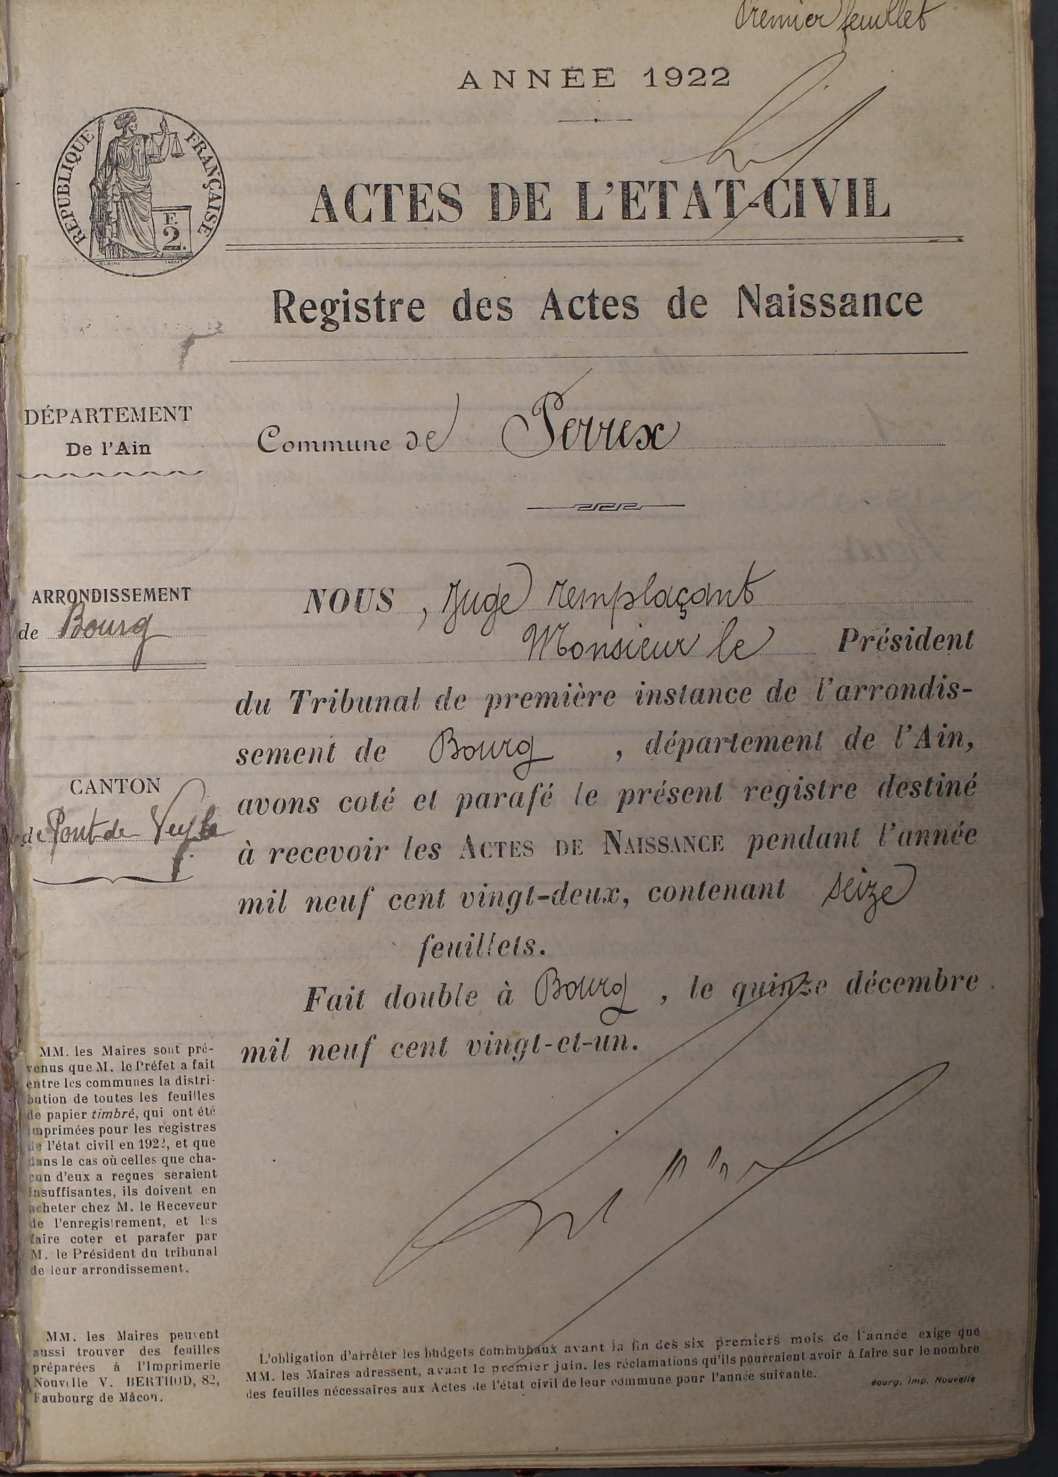 Premier feuillet
ANNÉE 1922
RÉPUBLIQUE FRANÇAISE
F.
2.
ACTES DE L'ETAT-CIVIL
Registre des Actes de Naissance
DÉPARTEMENT
De l'Ain
Commune de Perrex
ARRONDISSEMENT
de Bourg
CANTON
de Pont de Veyle
NOUS, Juge remplaçant
Monsieur le Président
du Tribunal de première instance de l'arrondis-
sement de Bourg, département de l'Ain,
avons coté et parafé le présent registre destiné
à recevoir les ACTES DE NAISSANCE pendant l'année
mil neuf cent vingt-deux, contenant seize
feuillets.
Fait double à Bourg, le quinze décembre
mil neuf cent vingt-et-un.
MM. les Maires sont pré-
venus que M. le Préfet a fait
entre les communes la distri-
bution de toutes les feuilles
de papier timbré, qui ont été
imprimées pour les registres
de l'état civil en 1922, et que
dans le cas où celles que cha-
cun d'eux a reçues seraient
insuffisantes, ils doivent en
acheter chez M. le Receveur
de l'enregistrement, et les
faire coter et parafer par
M. le Président du tribunal
de leur arrondissement.
MM. les Maires peuvent
aussi trouver des feuilles
préparées à l'Imprimerie
Nouvelle V. BERTHOD, 82,
Faubourg de Mâcon.
L'obligation d'arrêter les budgets communaux avant la fin des six premiers mois de l'année exige que
MM. les Maires adressent, avant le premier juin, les réclamations qu'ils pourraient avoir à faire sur le nombre
des feuilles nécessaires aux Actes de l'état civil de leur commune pour l'année suivante.
Bourg, Imp. Nouvelle